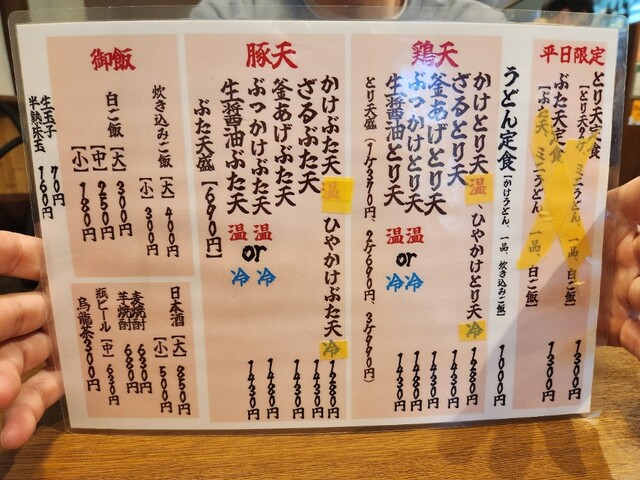 平日限定
とり天定食
［とり天2ケ、ミニうどん、一品、白ご飯］
1300円
ぶた天定食
［ぶた天、ミニうどん、一品、白ご飯］
1300円
うどん定食［かけうどん、一品、炊き込みご飯］
1000円
鶏天
かけとり天温、ひやかけとり天冷
1480円
ざるとり天
1430円
釜あげとり天
1430円
ぶっかけとり天 温or冷
1480円
生醤油とり天 温or冷
1480円
とり天盛（1ケ370円、2ケ690円、3ケ990円）
豚天
かけぶた天温、ひやかけぶた天冷
1480円
ざるぶた天
1430円
釜あげぶた天
1430円
ぶっかけぶた天 温or冷
1480円
生醤油ぶた天 温or冷
1430円
ぶた天盛［690円］
御飯
炊き込みご飯［大］400円
［小］300円
白ご飯［大］300円
［中］250円
［小］180円
日本酒［大］850円
［小］500円
麦焼酎 630円
芋焼酎 680円
瓶ビール［中］630円
烏龍茶300円
生玉子 70円
半熟味玉 160円